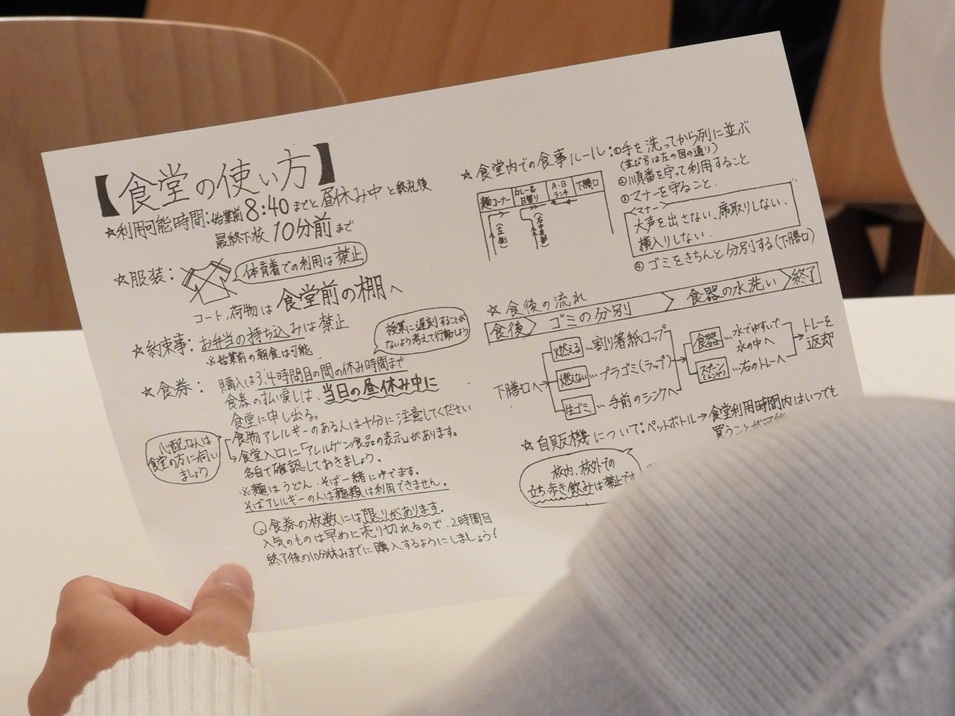 【食堂の使い方】
☆利用可能時間:始業前8:40までと昼休み中と終礼後
最終下校10分前まで
☆服装:
体育着での利用は禁止
コート、荷物は食堂前の棚へ
☆約束事:お弁当の持ち込みは禁止
※始業前の朝食は可能
授業に遅刻することが
ないよう考えて行動しよう
☆食券:購入は3,4時間目の間の休み時間まで
食券の払い戻しは、当日の昼休み中に
食堂に申し出る。
食物アレルギーのある人は十分に注意してください
→食堂入口に「アレルゲン食品の表示」があります。
各自で確認しておきましょう。
心配な人は
食堂の方に伺い
ましょう
※麺はうどん・そば一緒にゆでます。
そばアレルギーの人は麺類は利用できません。
食券の枚数には限りがあります。
人気のものは早めに売り切れるので、2時間目
終了後の10分休みまでに購入するようにしましょう!
☆食堂内での食事ルール:①手を洗ってから列に並ぶ
(並び方は左の図の通り)
②順番を守って利用すること
③マナーを守ること.
<マナー>
大声を出さない、席取りしない、
横入りしない.
④ゴミをきちんと分別する(下膳口)
麺コーナー
カレー&
日替り
A・B
ランチ
下膳口
☆食後の流れ
食後 ゴミの分別 食器の水洗い 終了
下膳口へ
燃える…割り箸紙コップ
燃えない…プラゴミ(ラップ)
生ゴミ…手前のシンクへ
食器…水でゆすいで
水の中へ
…右のトレーへ
トレーを
返却
☆自販機について:ペットボトル→食堂利用時間内はいつも
買うことが可能
校内、校外での
立ち歩き飲みは禁止です